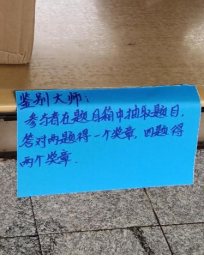 鉴别大师：
参与者在题目箱中抽取题目，
答对两题得一个奖章，四题得
两个奖章.